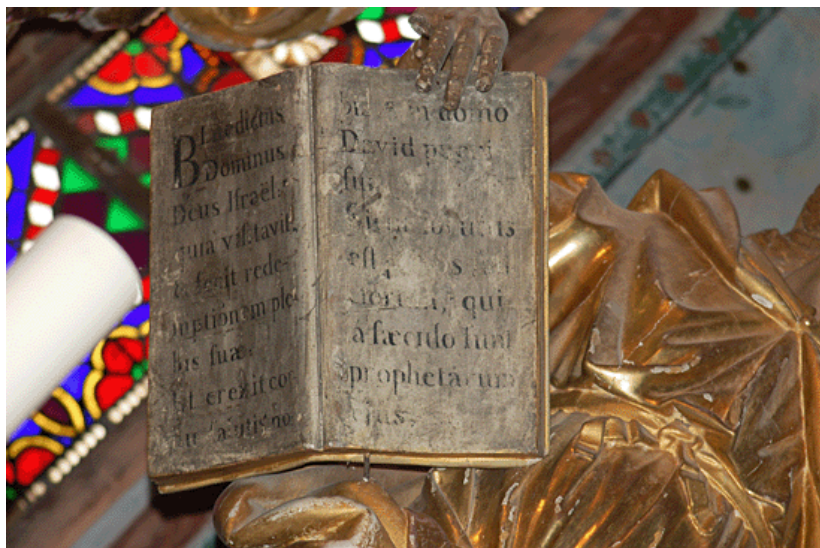 Benedictus
Dominus
Deus Israël,
quia visitavit,
et fecit rede-
mptiónem ple-
bis suæ.
Et erexit cor-
nu salutis no
bis in domo
David pueri
sui,
Sicut locutus
est
qui
a sæculo sunt
prophetarum
ejus.